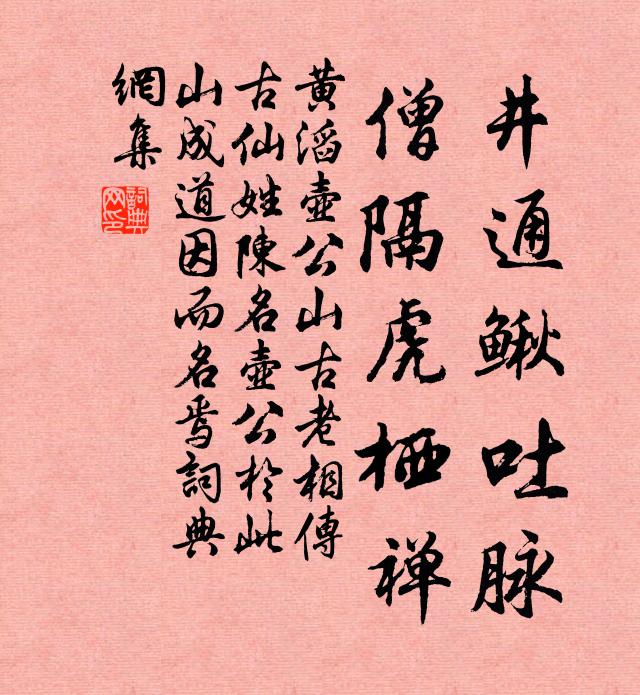 井通鳅吐脉
僧隔虎栖禅
黄滔壶公山古老相傳
古仙姓陳名壶公於此
山成道因而名焉詞典
網集
詞典
网印